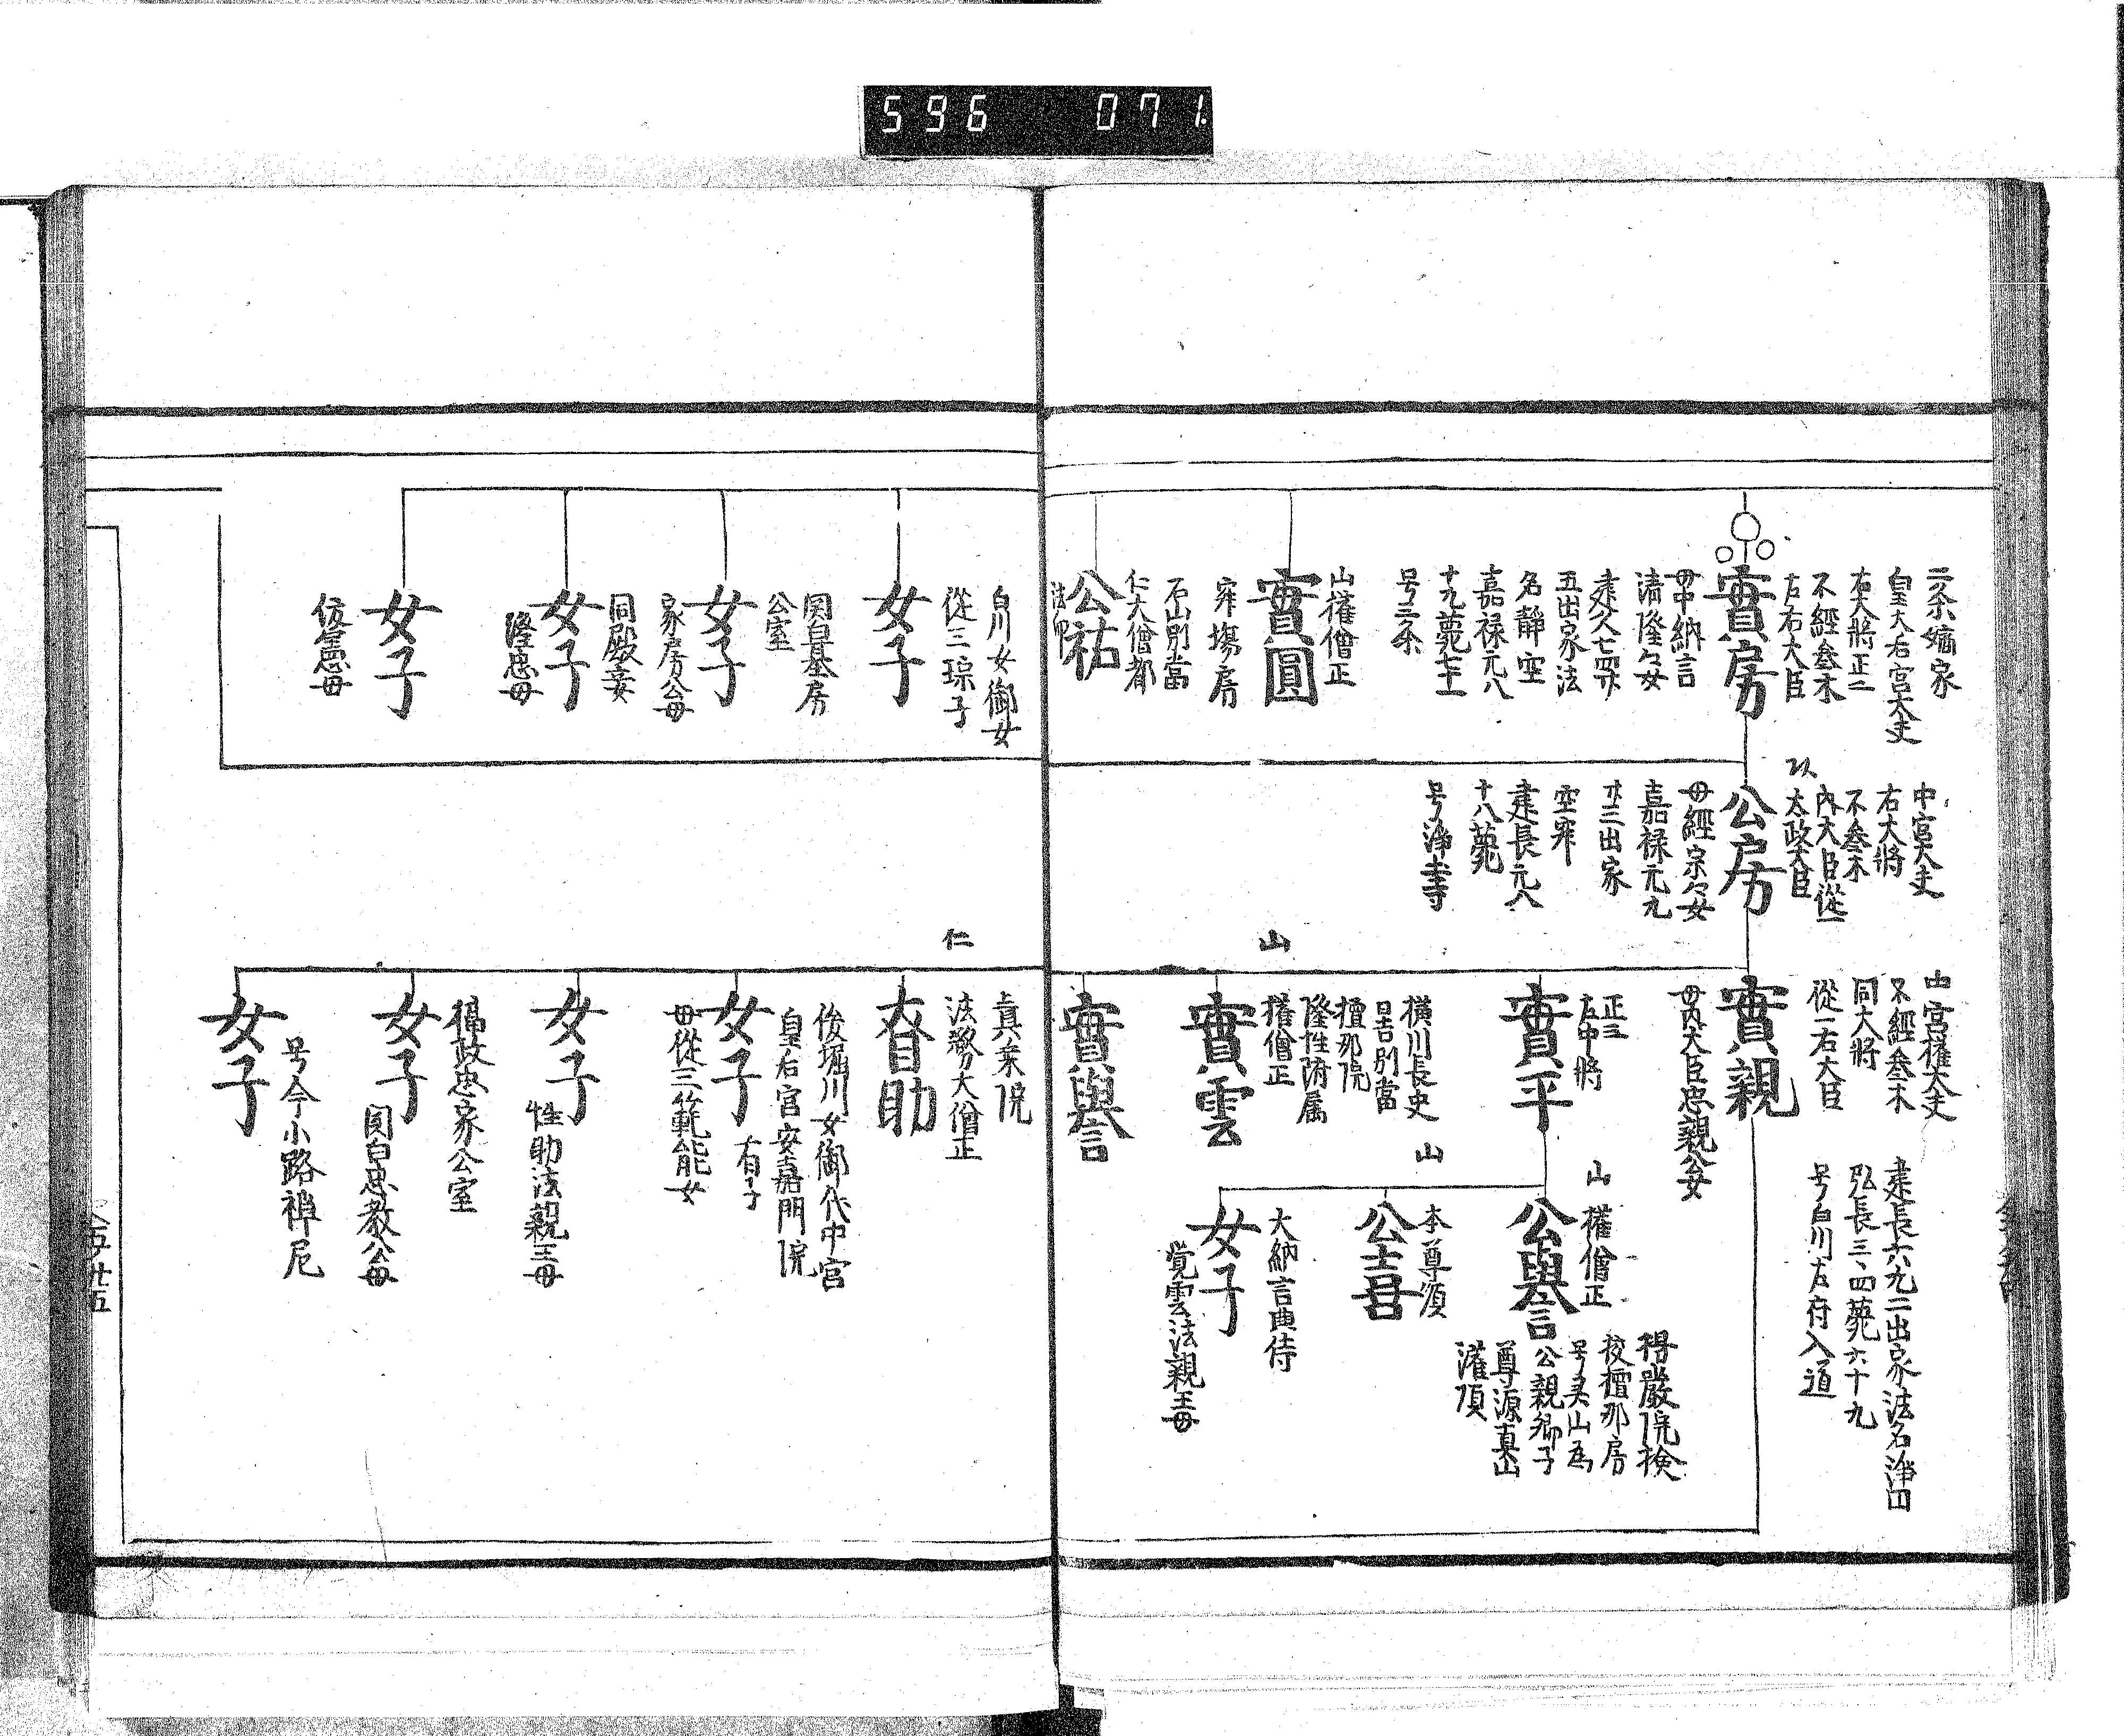 596 071.
二条嫡家
皇太后宮大夫
右大將正二
不經叅木
左右大臣
實房
母中納言
清隆女
建久七四
五出家法
名静空
嘉禄元八
十九薨七十一
号三条
山權僧正
實圓
寂場房
石山別當
仁大僧都
公祐
法印
白川女御女
從三琮子
女子
関白基房
公室
女子
家房公母
同殿妾
女子
隆忠母
女子
中宮大夫
右大將
不叅木
內大臣從一
太政大臣
公房
母經宗公女
嘉禄元九
廿三出家
空寂
建長元八
十八薨
号浄土寺
中宮權大夫
不經叅木
同大將
從一右大臣
建長六九二出家法名浄円
弘長三、四薨六十九
号白川右府入道
實親
母內大臣忠親公女
正三
左中將
實平
山
權僧正
公譽
得嚴院検
校檀那房
公親卿子
灌頂
山
本尊須
公善
大納言典侍
女子
覚雲法親王母
横川長史
日吉別當
檀那院
隆性附属
山
權僧正
實雲
實譽
仁
真乗院
法務大僧正
女子
俊堀川女御代中宮
皇后宮安嘉門院
有子
母從三範能女
女子
性助法親王母
攝政忠家公室
女子
関白忠教公母
女子
号今小路禅尼
五ノ廿五